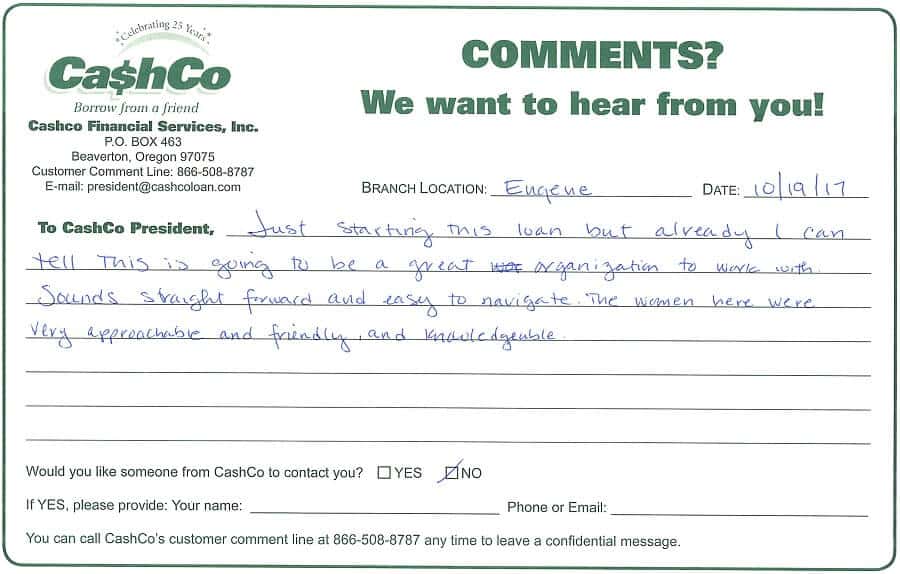 Celebrating 25 Years
Ca$hCo
Borrow from a friend
Cashco Financial Services, Inc.
P.O. BOX 463
Beaverton, Oregon 97075
Customer Comment Line: 866-508-8787
E-mail: president@cashcoloan.com
COMMENTS?
We want to hear from you!
BRANCH LOCATION: Eugene DATE: 10/19/17
To CashCo President, Just starting this loan but already I can
tell this is going to be a great organization to work with.
Sounds straight forward and easy to navigate. The women here were
very approachable and friendly, and knowledgeable.
Would you like someone from CashCo to contact you? YES NO
If YES, please provide: Your name: Phone or Email:
You can call CashCo's customer comment line at 866-508-8787 any time to leave a confidential message.